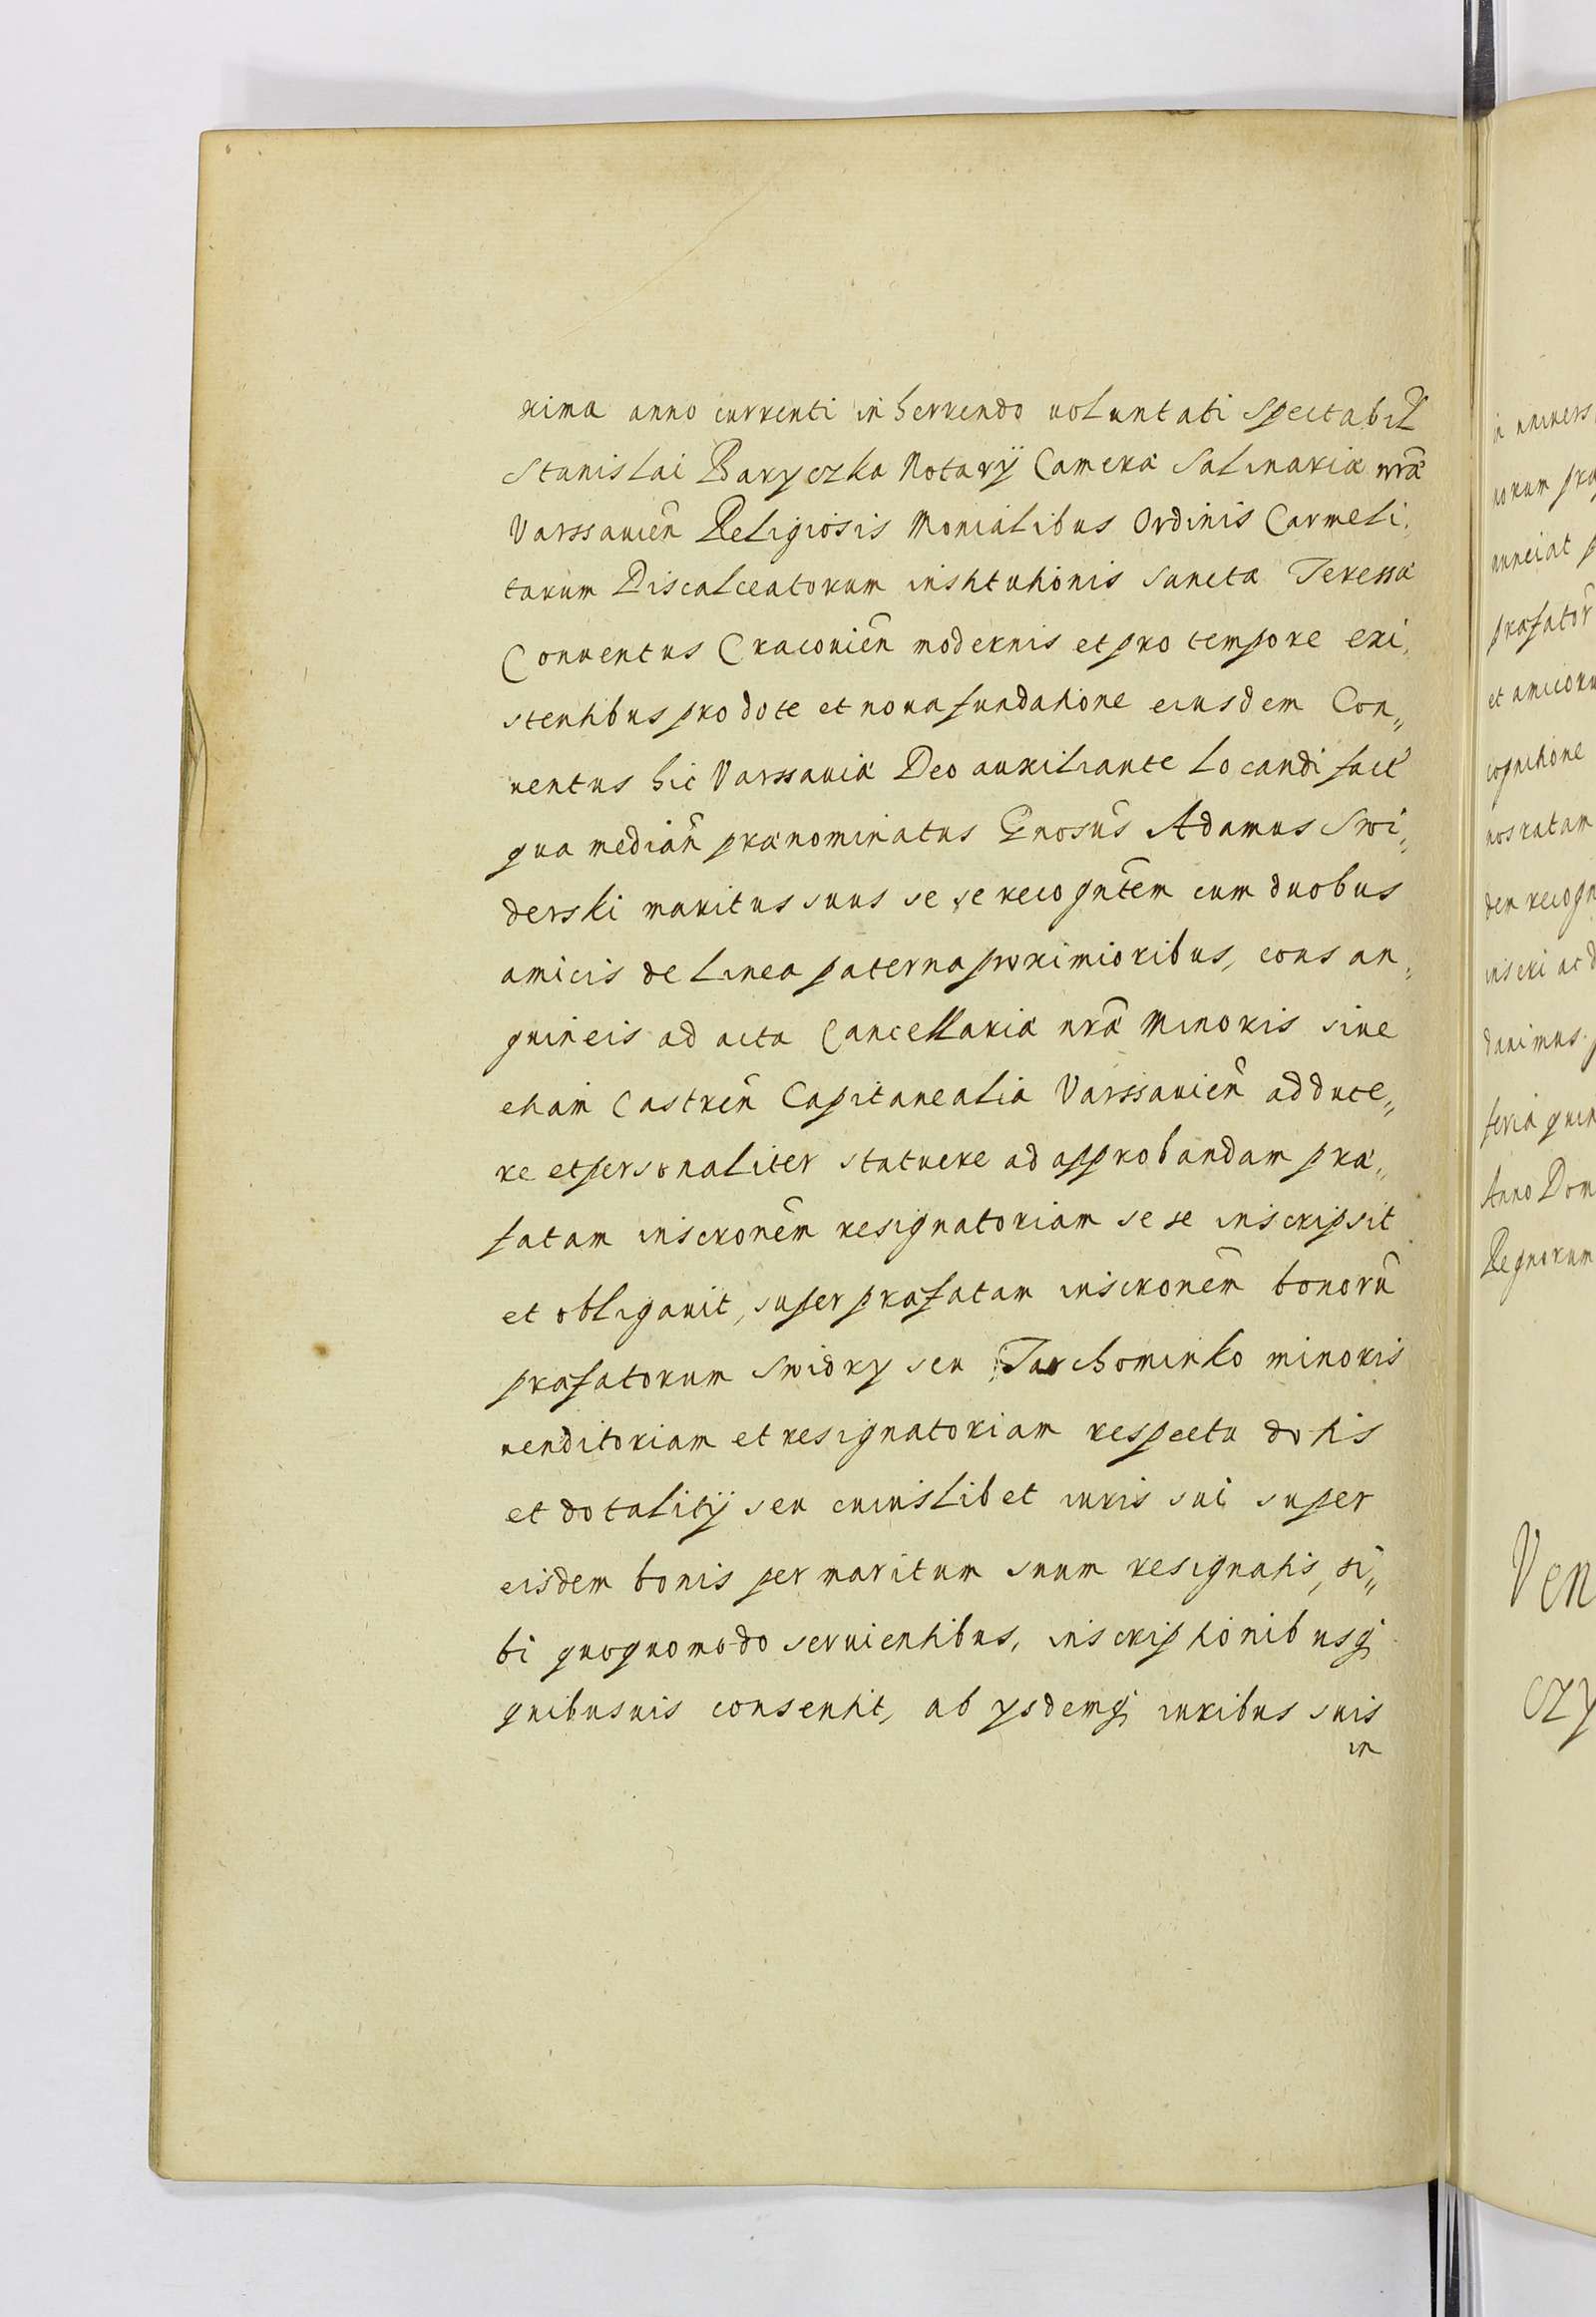 xima anno currenti inherrendo uoluntati Spectabil
Stanislai Baryczka Notarÿ Cameræ Salinariæ nrã
Varssauien̄ Religiosis Monialibus Ordinis Carmeli,
tarum Discalceatorum institutionis Sanctæ Teressæ
Conuentus Cracouien̄ modernis et pro tempore exi,
stentibus pro dote et noua fundatione eiusdem Con„
uentus hic Varssauiæ Deo auxiliante locandi fact̃
qua median̄ prænominatus Gnosus̄ Adamus Swi„
derski maritus suus se se recogntēm cum duobus
amicis de linea paterna proximioribus, consan„
guineis ad acta Cancellariæ nrã Minoris siue
etiam Castren̄ Capitanealia Varssauien̄ adduce„
re et personaliter statuere ad approbandam præ„
fatam inscronēm resignatoriam se se inscripsit
et obligauit, super præfatam inscronēm bonorū
præfatorum Swidry seu Tarchominko minoris
uenditoriam et resignatoriam respectu dotis
et dotalitÿ seu cuiuslibet iuris sui super
eisdem bonis per maritum suum resignatis, si„
bi quoquomodo seruientibus, inscriptionibusq;
quibusuis consentit, ab ysdemq; iuribus suis
in
in uniuers
norum præ
annciat p
præfator̄
et amicoru
cognitione
nos ratam
den recogn
inscri ac d
dauimus. p
feria quin
Anno Dom
Regnorum
Ven
czy